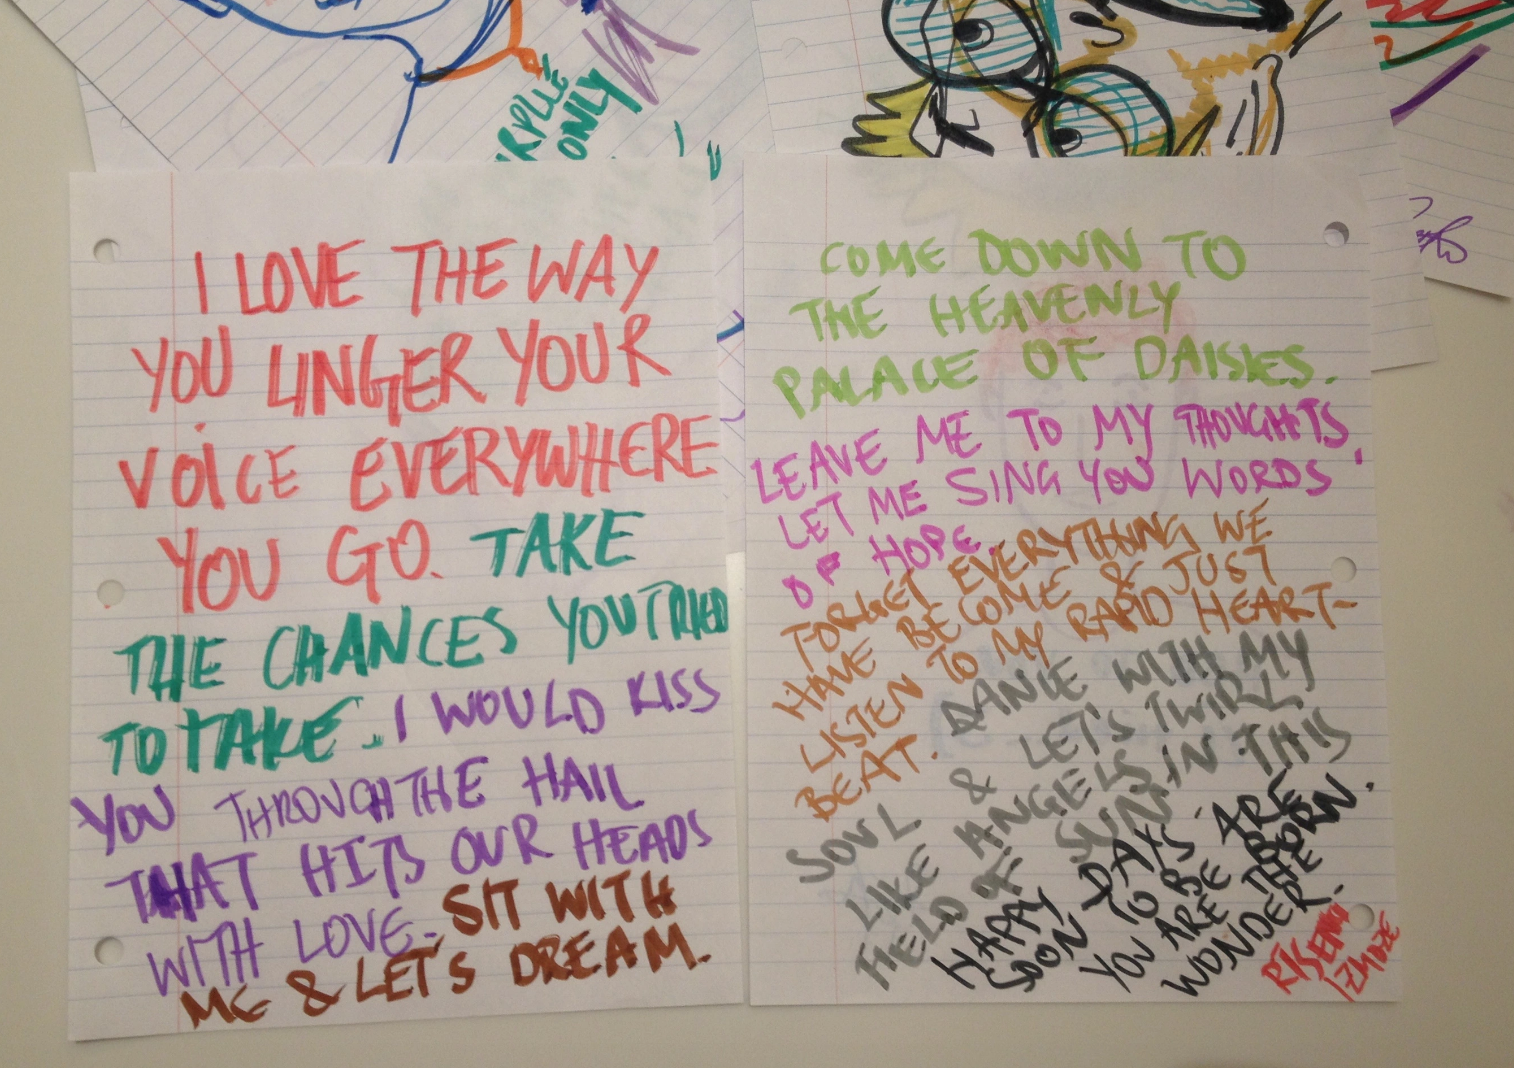 ONLY
I LOVE THE WAY
YOU LINGER YOUR
VOICE EVERYWHERE
YOU GO. TAKE
THE CHANCES YOU TRIED
TO TAKE. I WOULD KISS
YOU THROUGH THE HAIL
THAT HITS OUR HEADS
WITH LOVE. SIT WITH
ME & LET'S DREAM.
COME DOWN TO
THE HEAVENLY
PALACE OF DAISIES.
LEAVE ME TO MY THOUGHTS,
LET ME SING YOU WORDS
OF HOPE.
FORGET EVERYTHING WE
HAVE BECOME & JUST
LISTEN TO MY RAPID HEART-
BEAT. DANCE WITH MY
SOUL & LET'S TWIRL
LIKE ANGELS IN THIS
FIELD OF SUN.
HAPPY DAYS ARE
SOON TO BE BORN.
YOU ARE THE
WONDER.